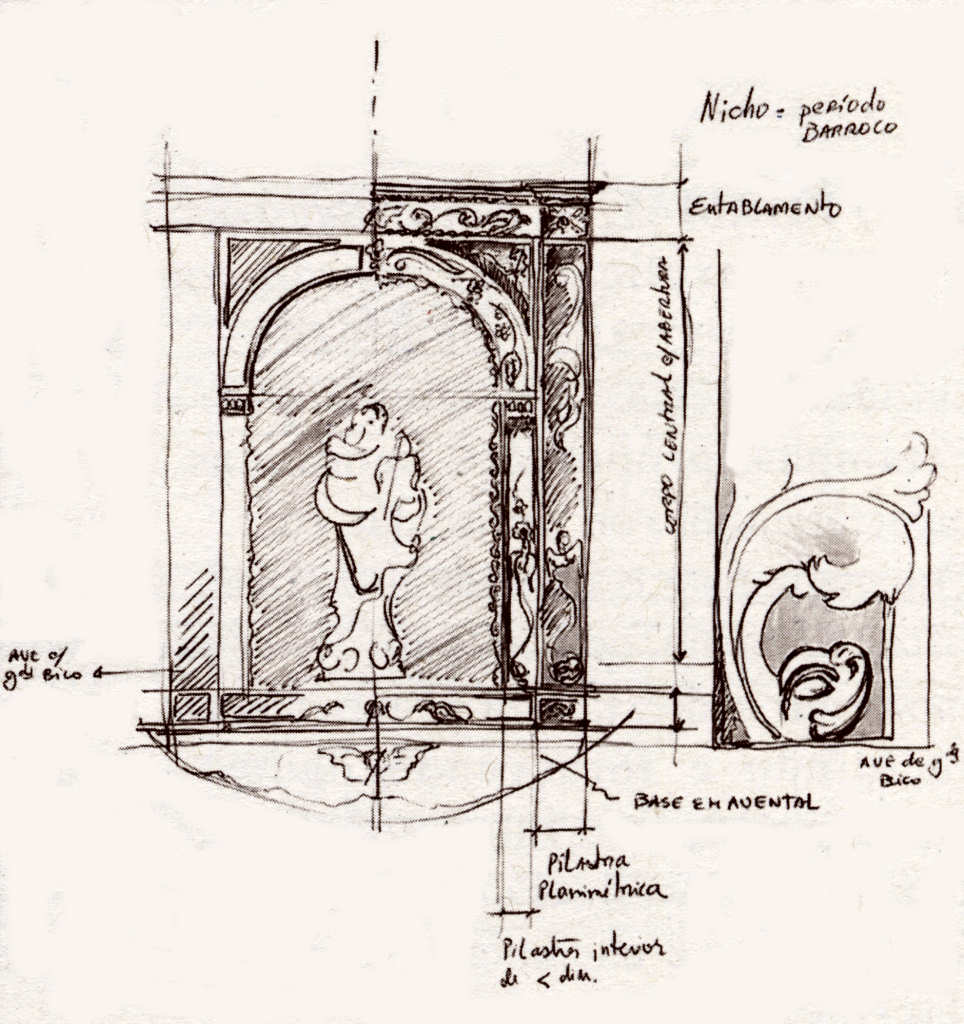 Nicho = período
BARROCO
ENTABLAMENTO
CORPO CENTRAL c/ ABERTURA
AVE c/
gde Bico
AVE de gde
Bico
BASE EM AVENTAL
Pilastra
Planimétrica
Pilastra interior
de < dim.